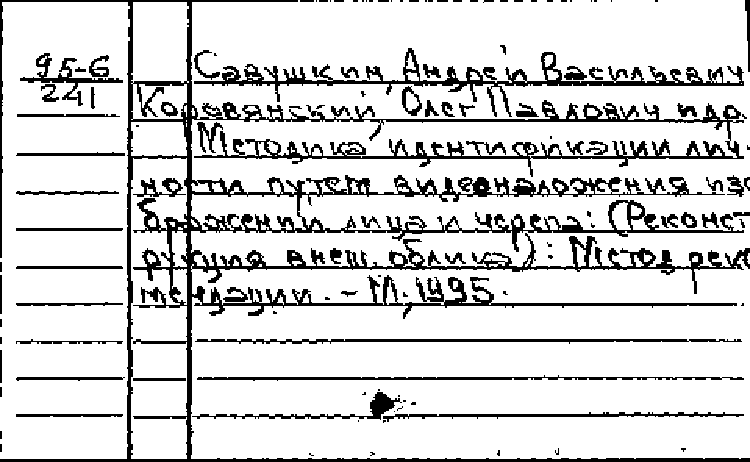 95-6
241
Савушкин, Андрей Васильевич
Коровянский, Олег Павлович и др
Методика идентификации лич-
ности путем видеоналожения изо
бражений лица и черепа: (Реконст
рукция внеш. облика): Метод реко
мендации. - М., 1995.